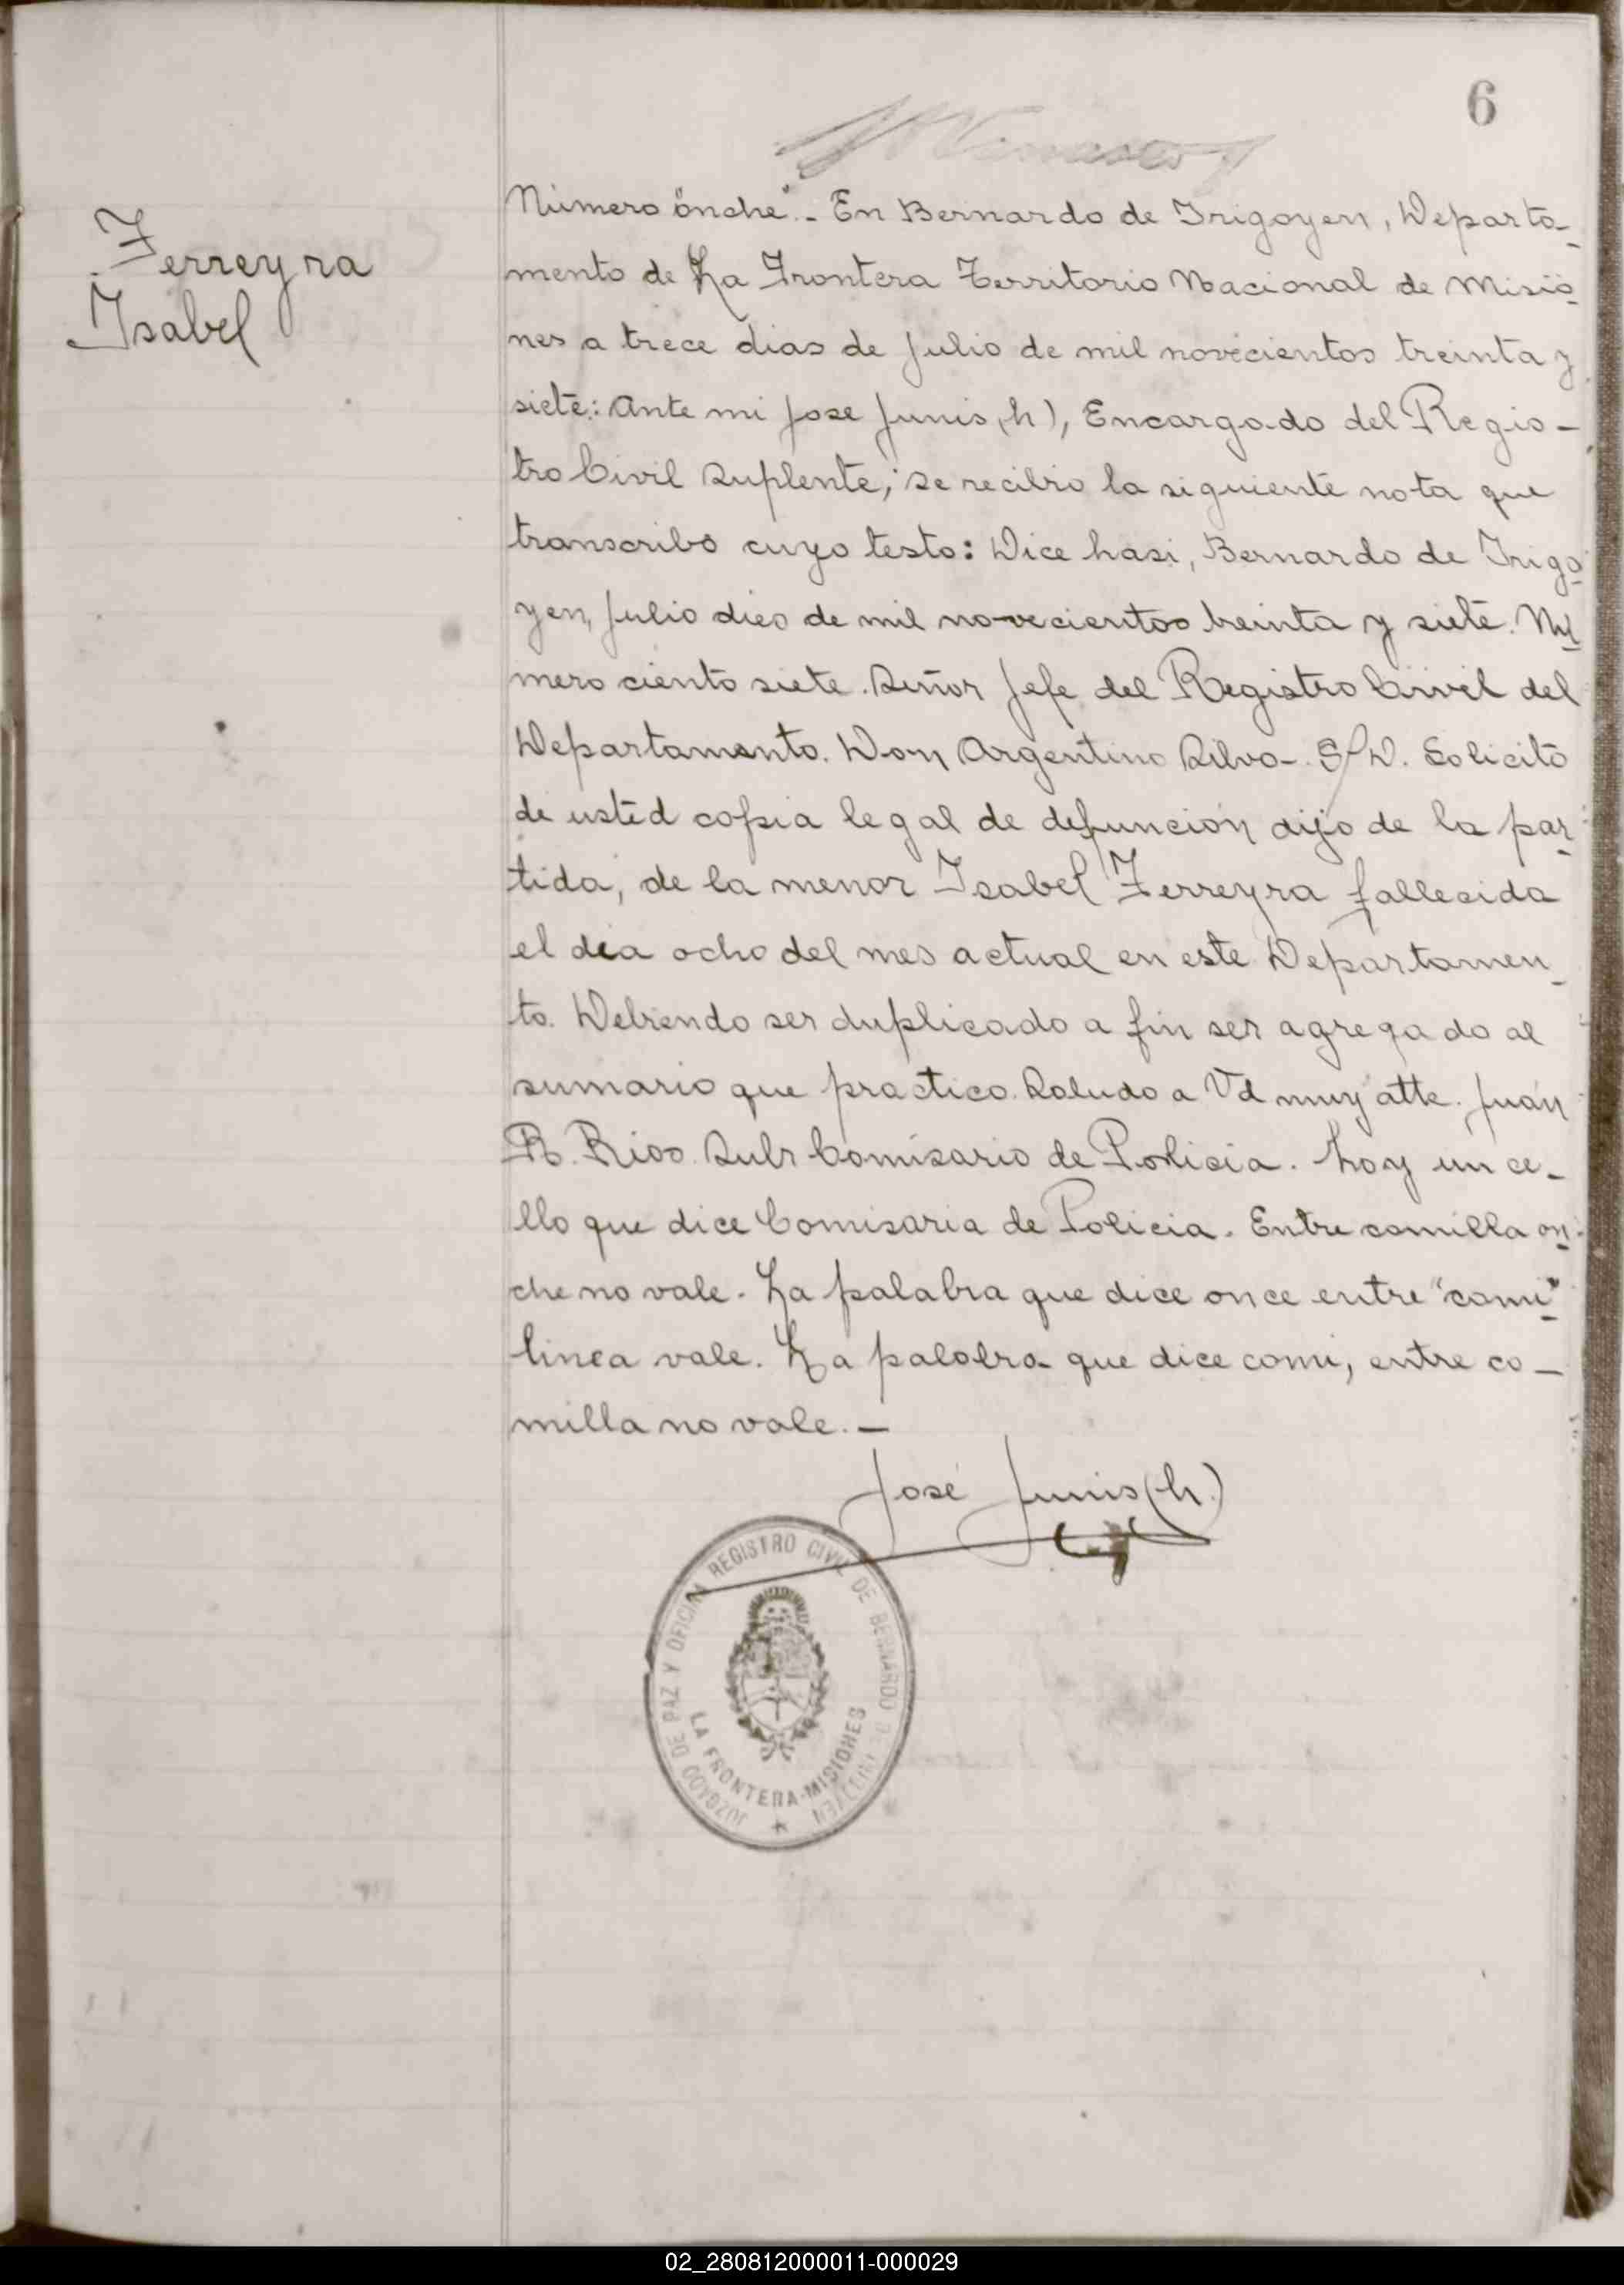 6
Ferreyra
Isabel
Número "onche".- En Bernardo de Irigoyen, Departa-
mento de La Frontera Territorio Nacional de Misio-
nes a trece dias de Julio de mil novecientos treinta y
siete: Ante mi Jose Junis (h), Encargado del Regis-
tro Civil Suplente; se recibio la siguiente nota que
transcribo cuyo testo: Dice hasi, Bernardo de Irigo-
yen, Julio dies de mil novecientos treinta y siete. Nu-
mero ciento siete. Señor Jefe del Registro Civil del
Departamento. Don Argentino Silva-. S/D. Solicito
de usted copia legal de defunción dijo de la par-
tida, de la menor Isabel Ferreyra fallesida
el dia ocho del mes actual en este Departamen-
to. Debiendo ser duplicado a fin ser agregado al
sumario que practico. Saludo a Vd muy atte. Juan
R. Rios. Sub Comisario de Polisia. hay un ce-
llo que dice Comisaria de Policia. Entre comilla on-
che no vale. La palabra que dice once entre "comi"
linea vale. La palabra que dice comi, entre co-
milla no vale.-
José Junis (h.)
JUZGADO DE PAZ Y OFICINA REGISTRO CIVIL DE BERNARDO DE IRIGOYEN
LA FRONTERA-MISIONES
02_280812000011-000029